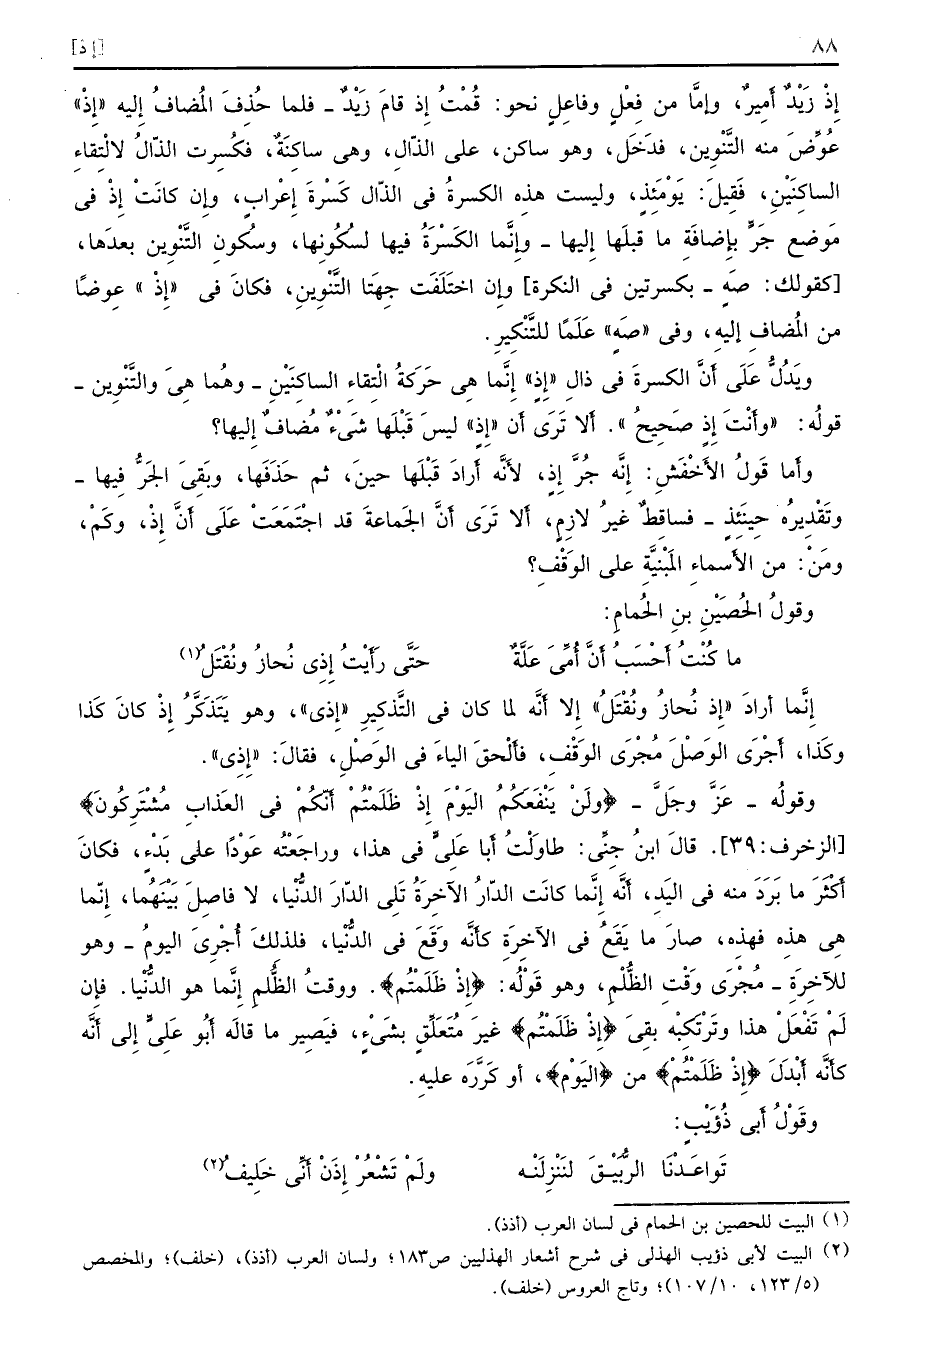 ٨٨ [إذ]
إذْ زَيْدٌ أميرٌ، وإمَّا من فِعْلٍ وفاعلٍ نحو: قُمْتُ إذ قامَ زَيْدٌ ـ فلما حُذِفَ المُضافُ إليه «إذْ»
عُوِّضَ منه التَّنْوين، فدَخَل، وهو ساكن، على الذّالِ، وهى ساكنَةٌ، فكُسِرت الذّالُ لالْتِقاءِ
الساكنَيْنِ، فَقِيلَ: يَوْمَئِذٍ، وليست هذه الكسرةُ فى الذّال كَسْرةَ إعْرابٍ، وإن كانَتْ إذْ فى
مَوضع جَرٍّ بإضافَةِ ما قبلَها إليها ـ وإنَّما الكَسْرَةُ فيها لسكُونِها، وسكُون التَّنْوين بعدَها،
[كقولك: صَهٍ ـ بكسرتين فى النكرة] وإن اختَلَفَت جِهتا التَّنْوينِ، فكانَ فى «إذْ» عوضًا
من المُضافِ إليهِ، وفى «صَهٍ» عَلَمًا للتَّنْكِيرِ.
ويَدُلُّ عَلَى أنَّ الكسرةَ فى ذالِ «إذٍ» إنَّما هى حَرَكَةُ الْتِقاءِ الساكنَيْنِ ـ وهُما هىَ والتَّنْوين ـ
قولُه: «وأنْتَ إذٍ صَحيحُ». ألا تَرَى أن «إذٍ» ليسَ قَبْلَها شَىْءٌ مُضافٌ إليها؟
وأما قَولُ الأخْفَشِ: إنَّه جُرَّ إذٍ، لأنَّه أرادَ قَبْلَها حينَ، ثم حَذَفَها، وبَقِىَ الجَرُّ فيها ـ
وتَقْديرُه حِينَئِذٍ ـ فساقِطٌ غيرُ لازِمٍ، ألا تَرَى أنَّ الجَماعةَ قد اجْتَمَعَتْ عَلَى أنَّ إذْ، وكَمْ،
ومَنْ: من الأسماءِ المَبْنيَّةِ على الوَقْفِ؟
وقولُ الحُصَيْنِ بنِ الحُمامِ:
ما كُنْتُ أحْسَبُ أنَّ أُمِّىَ عَلَّةٌ حَتَّى رَأيْتُ إذِى نُحازُ ونُقْتَلُ(١)
إنَّما أرادَ «إذ نُحازُ ونُقْتَلُ» إلا أنَّه لما كان فى التَّذكيرِ «إذى»، وهو يَتَذكَّرُ إذْ كانَ كَذا
وكَذا، أجْرَى الوَصْلَ مُجْرَى الوَقْفِ، فألْحقَ الياءَ فى الوَصْلِ، فقالَ: «إذِى».
وقولُه ـ عَزَّ وجَلَّ ـ ﴿ولَنْ يَنْفَعَكُمُ اليَوْمَ إذْ ظَلَمْتُمْ أنَّكُمْ فى العَذابِ مُشْتَرِكُونَ﴾
[الزخرف: ٣٩]. قالَ ابنُ جِنِّى: طاوَلْتُ أبا عَلِىٍّ فى هذا، وراجَعْتُه عَوْدًا على بَدْءٍ، فكانَ
أكْثَرَ ما بَرَدَ منه فى اليَدِ، أنَّه إنَّما كانَت الدّارُ الآخرَةُ تَلِى الدّارَ الدُّنْيا، لا فاصِلَ بَيْنَهُما، إنَّما
هى هذه فهذه، صارَ ما يَقَعُ فى الآخِرَةِ كأنَّه وَقَعَ فى الدُّنْيا، فلذلكَ أُجْرِىَ اليومُ ـ وهو
للآخِرَةِ ـ مُجْرَى وَقْتِ الظُّلْمِ، وهو قَوْلُه: ﴿إذْ ظَلَمْتُم﴾. ووقتُ الظُّلمِ إنَّما هو الدُّنْيا. فإن
لَمْ تَفْعَلْ هذا وتَرْتَكِبْه بقىَ ﴿إذْ ظَلَمْتُم﴾ غيرَ مُتَعلِّقٍ بشَىْءٍ، فيَصير ما قالَه أبُو علىٍّ إلى أنَّه
كأنَّه أبْدَلَ ﴿إذْ ظَلَمْتُمْ﴾ من ﴿اليَوْمِ﴾، أو كَرَّرَه عليه.
وقَوْلُ أبى ذُؤَيْبٍ:
تَواعَدْنَا الرُّبَيْقَ لنَنْزِلَنْه ولَمْ تَشْعُرْ إذَنْ أنِّى خَلِيفُ(٢)
(١) البيت للحصين بن الحمام فى لسان العرب (أذذ).
(٢) البيت لأبى ذؤيب الهذلى فى شرح أشعار الهذليين ص١٨٣؛ ولسان العرب (أذذ)، (خلف)؛ والمخصص
(٥/١٢٣، ١٠/١٠٧)؛ وتاج العروس (خلف).